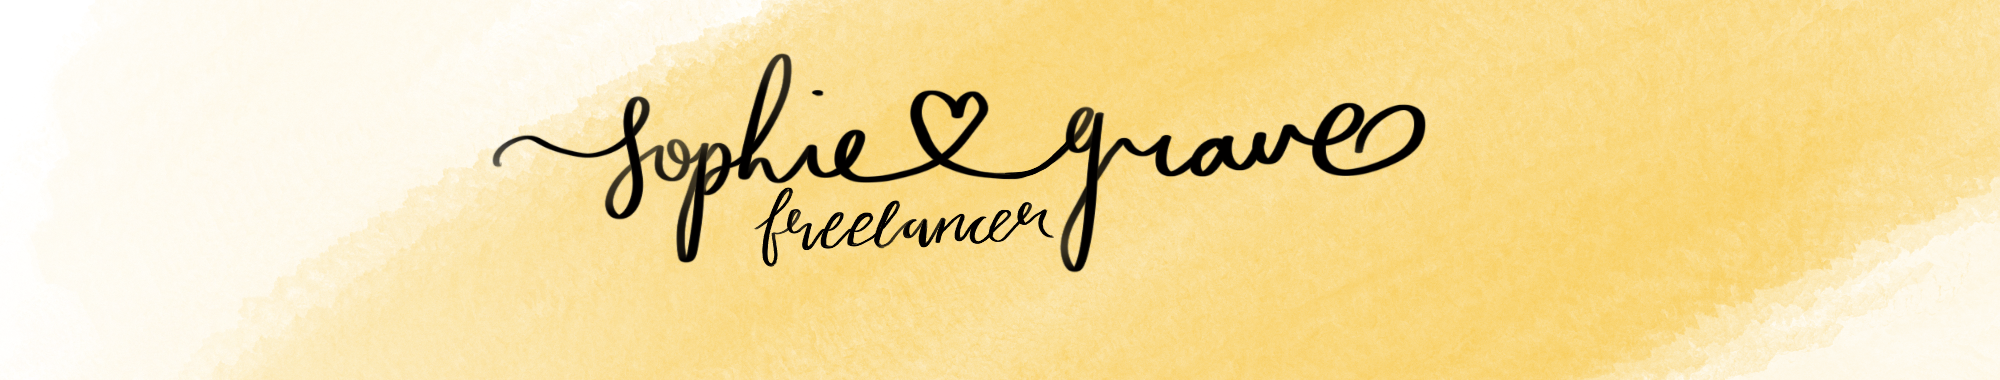 Sophie grave
freelancer